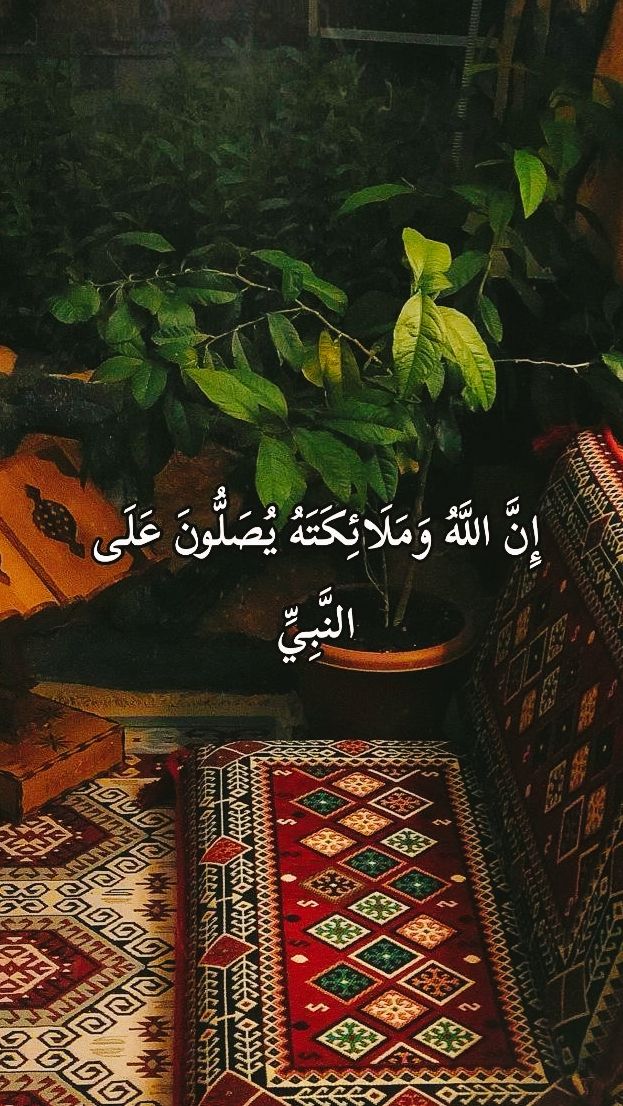 إِنَّ اللَّهُ وَمَلَائِكَتَهُ يُصَلُّونَ عَلَى
النَّبِيِّ